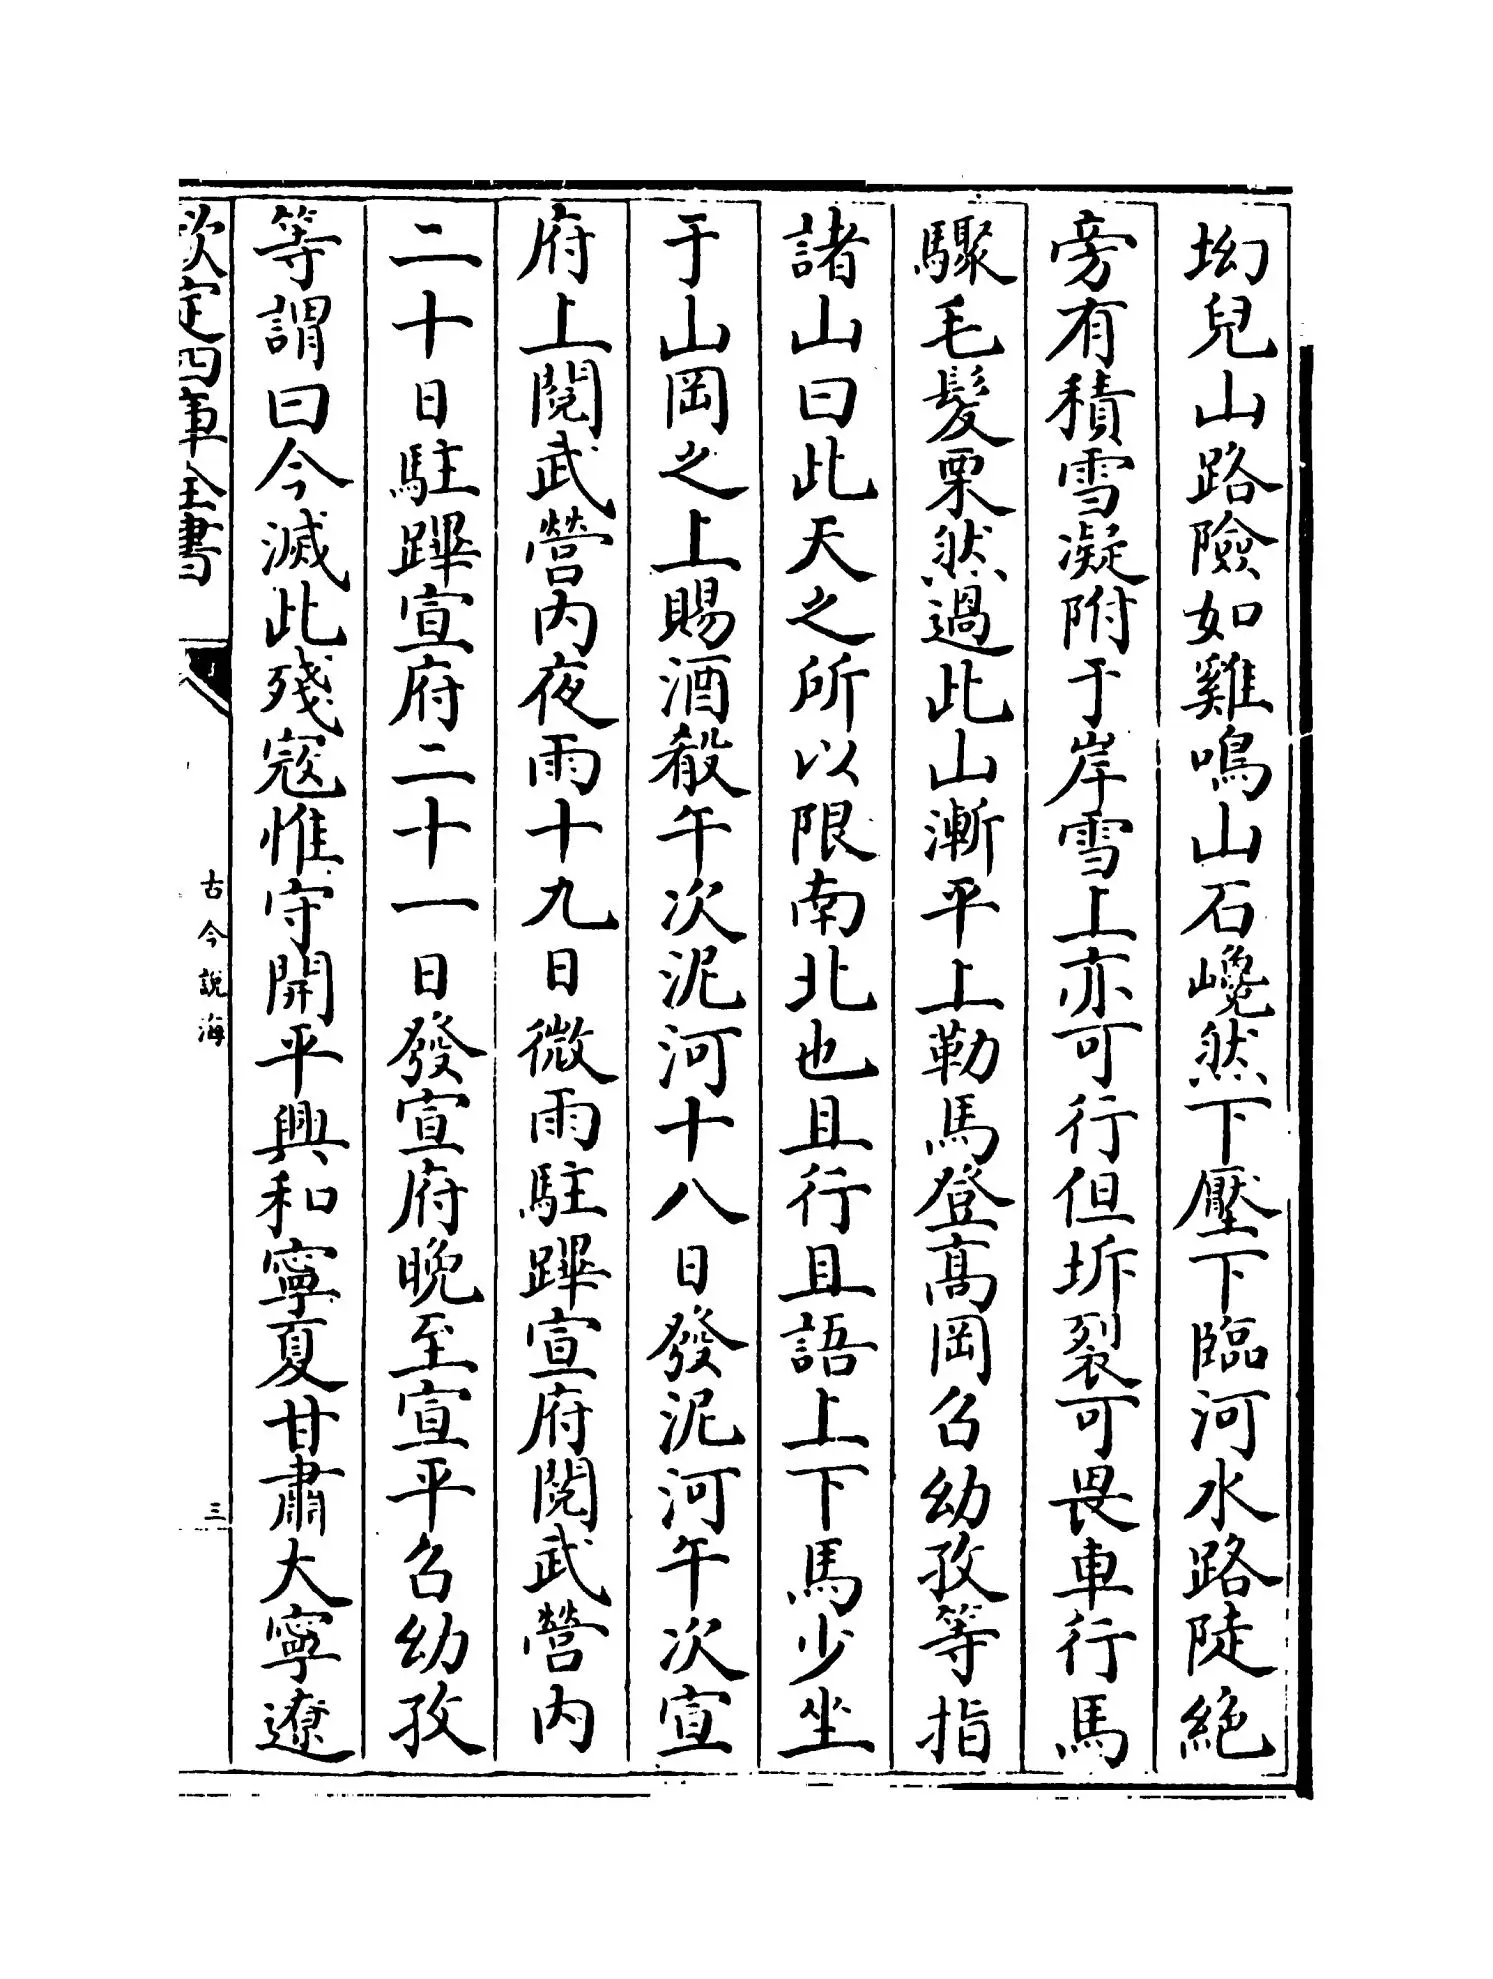 坳兒山路險如雞鳴山石巉然下壓下臨河水路陡絶
旁有積雪凝附于岸雪上亦可行但坼裂可畏車行馬
驟毛髮栗然過此山漸平上勒馬登髙岡召幼孜等指
諸山曰此天之所以限南北也且行且語上下馬少坐
于山岡之上賜酒殽午次泥河十八日發泥河午次宣
府上閱武營内夜雨十九日微雨駐蹕宣府閱武營内
二十日駐蹕宣府二十一日發宣府晚至宣平召幼孜
等謂曰今滅此殘寇惟守開平興和寧夏甘肅大寧遼
欽定四庫全書
古今說海
三